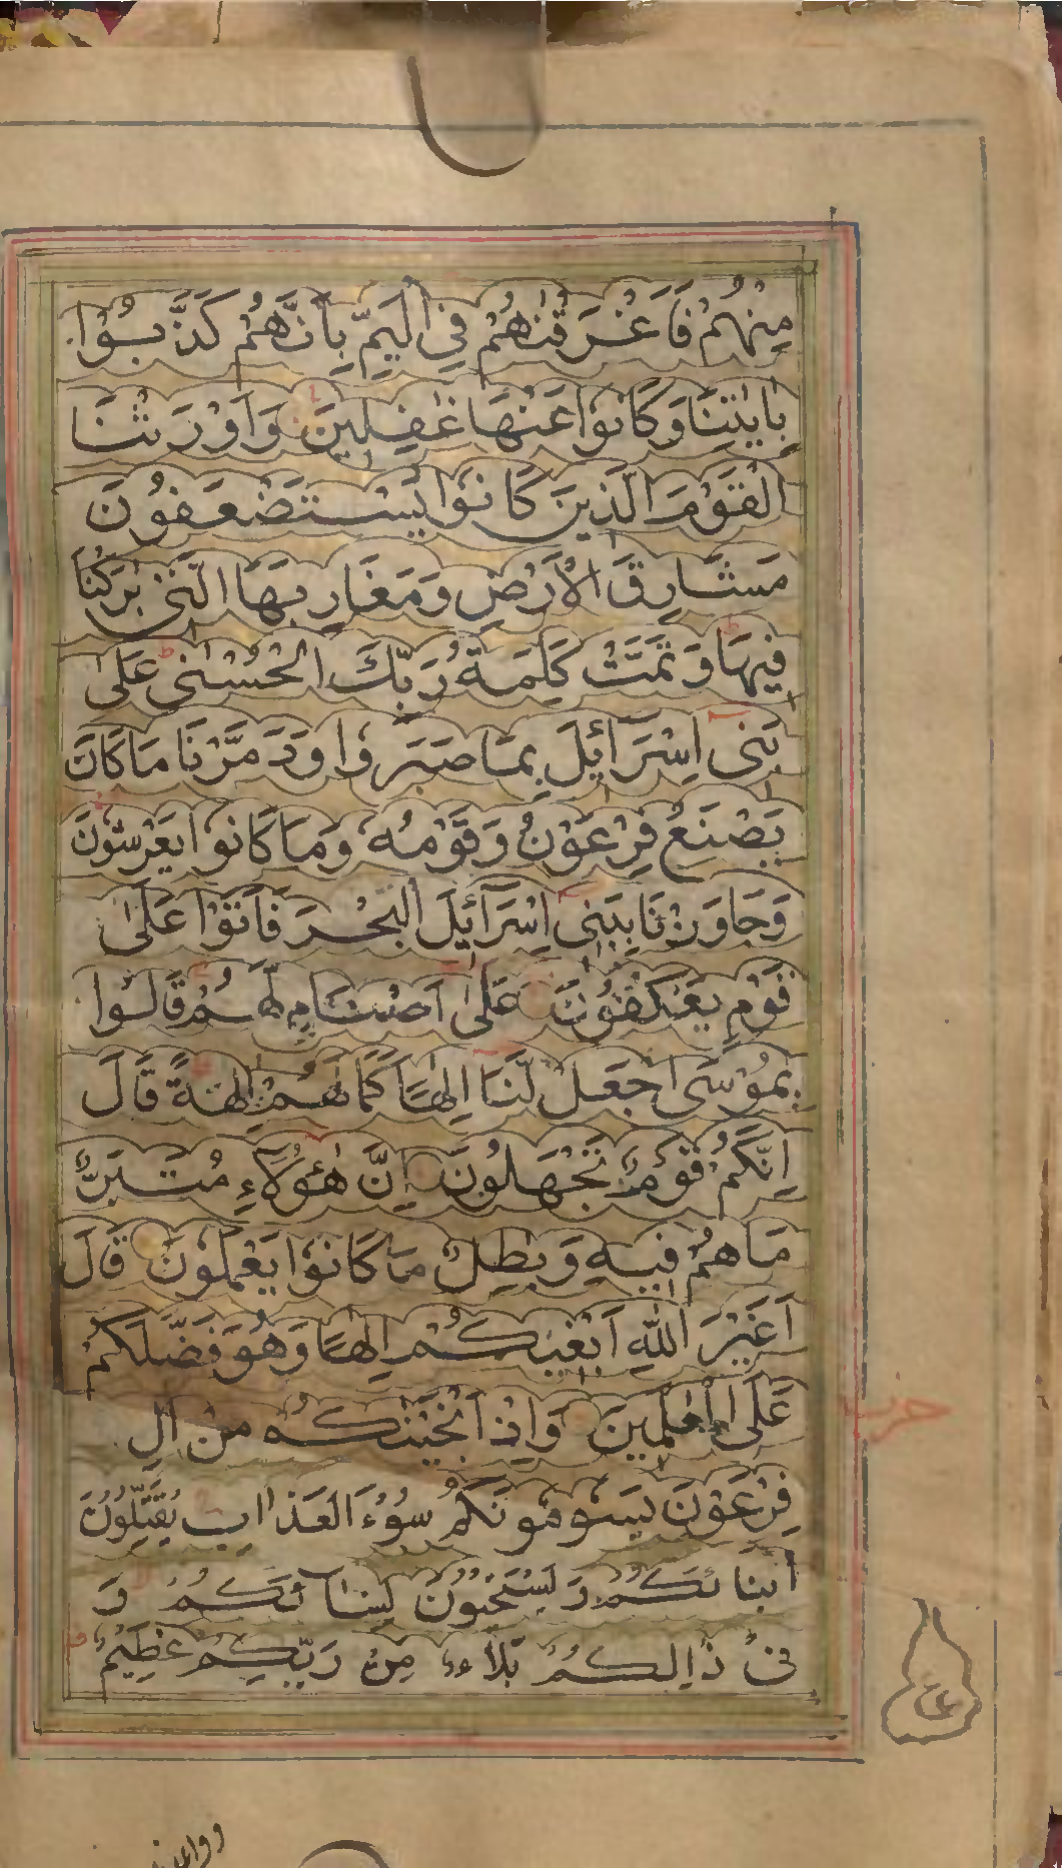 مِنْهُمْ فَاَغْرَقْنٰهُمْ فِی الْیَمِّ بِاَنَّهُمْ كَذَّبُوْا
بِاٰیٰتِنَا وَكَانُوْا عَنْهَا غٰفِلِیْنَ وَاَوْرَثْنَا
الْقَوْمَ الَّذِیْنَ كَانُوْا یُسْتَضْعَفُوْنَ
مَشَارِقَ الْاَرْضِ وَمَغَارِبَهَا الَّتِیْ بٰرَكْنَا
فِیْهَا وَتَمَّتْ كَلِمَةُ رَبِّكَ الْحُسْنٰی عَلٰی
بَنِیْ اِسْرَآئِیْلَ بِمَا صَبَرُوْا وَدَمَّرْنَا مَا كَانَ
یَصْنَعُ فِرْعَوْنُ وَقَوْمُهٗ وَمَا كَانُوْا یَعْرِشُوْنَ
وَجَاوَزْنَا بِبَنِیْ اِسْرَآئِیْلَ الْبَحْرَ فَاَتَوْا عَلٰی
قَوْمٍ یَعْكُفُوْنَ عَلٰی اَصْنَامٍ لَّهُمْ قَالُوْا
یٰمُوْسَی اجْعَلْ لَّنَا اِلٰهًا كَمَا لَهُمْ اٰلِهَةٌ قَالَ
اِنَّكُمْ قَوْمٌ تَجْهَلُوْنَ اِنَّ هٰؤُلَآءِ مُتَبَّرٌ
مَا هُمْ فِیْهِ وَبٰطِلٌ مَا كَانُوْا یَعْمَلُوْنَ قَالَ
اَغَیْرَ اللّٰهِ اَبْغِیْكُمْ اِلٰهًا وَهُوَ فَضَّلَكُمْ
عَلَی الْعٰلَمِیْنَ وَاِذْ اَنْجَیْنٰكُمْ مِنْ اٰلِ
حزب
فِرْعَوْنَ یَسُوْمُوْنَكُمْ سُوْٓءَ الْعَذَابِ یُقَتِّلُوْنَ
اَبْنَائَكُمْ وَیَسْتَحْیُوْنَ نِسَائَكُمْ وَ
فِیْ ذٰالِكُمْ بَلَاءٌ مِنْ رَبِّكُمْ عَظِیْمٌ